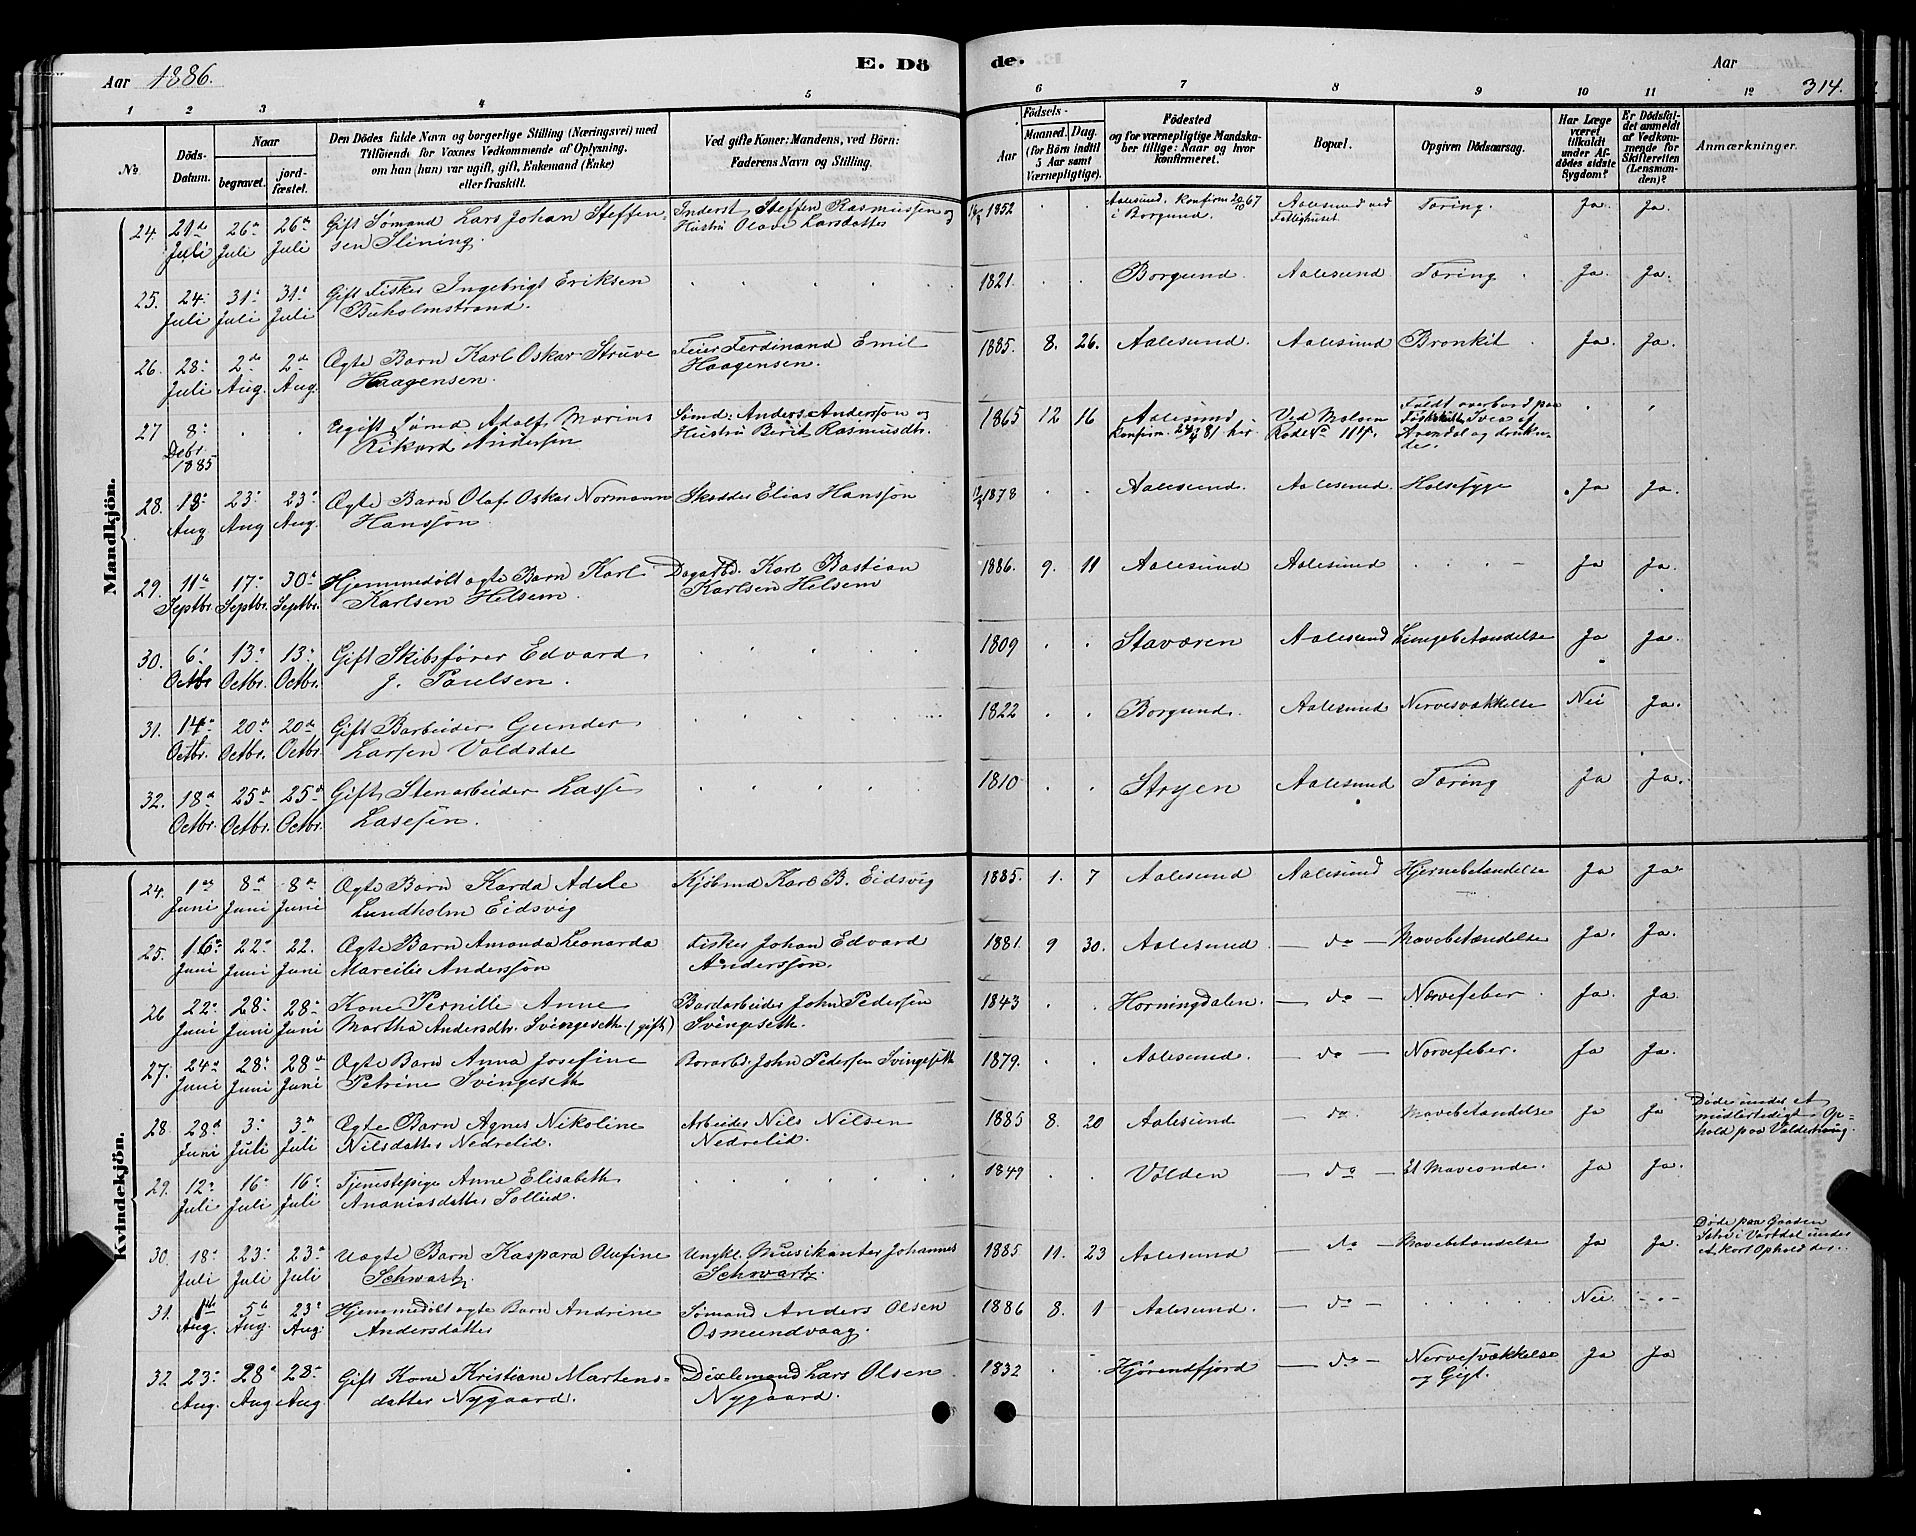 Aar 1886. E. Dö
de. Aar 314.
1 2 3 4 5 6 7 8 9 10 11 12
No.
Döds-Datum.
Naar
begravet. jordfæstet.
Den Dödes fulde Navn og borgerlige Stilling (Næringsvei) med
Tilföiende for Voxnes Vedkommende af Oplysning,
om han (hun) var ugift, gift, Enkemand (Enke)
eller fraskilt.
Ved gifte Koner: Mandens, ved Börn:
Faderens Navn og Stilling.
Födsels-
Aar Maaned. Dag.
(for Börn indtil
5 Aar samt
Værnepligtige).
Födested
og for værnepligtige Mandska-
ber tillige: Naar og hvor
konfirmeret.
Bopæl.
Opgiven Dödsaarsag.
Har Læge
været
tilkaldt
under Af-
dödes sidste
Sygdom?
Er Dödsfal-
det anmeldt
af Vedkom-
mende for
Skifteretten
(Lensman-
den)?
Anmærkninger.
Mandkjön.
24. 21de Juli 26de Juli 26de Juli Gift Sømand Lars Johan Steffen-
sen Slining. Inderst Steffen Rasmussen og
Hustru Olave Larsdatter 1852 Aalesund. Konfirm. 20/10 67
i Borgund. Aalesund ved
Fattighuset. Tæring. Ja. Ja.
25. 24. Juli 31. Juli 31. Juli Gift Fisker Ingebrigt Eriksen
Buholmstrand. 1821. Borgund. Aalesund. Tæring Ja. Ja.
26. 28. Juli 2de Aug. 2de Aug. Ægte Barn Karl Oskar Struve
Haagensen. Feier Ferdinand Emil
Haagensen. 1885. 8. 26. Aalesund. Aalesund Bronkit Ja. Ja.
27 8. Debr. 1885 Ugift Sømd Adolf Marius
Rikard Andersen Sømd: Anders Andersøn og
Hustru Berit Rasmusdtr. 1865 12 16 Aalesund
Konfirm. 24/4 81 her. Ved Molven
Rode No 114. Faldt overbord paa
Svea af
Arendal og drukne-
de.
28. 18. Aug 23. Aug 23. Aug. Ægte Barn Olaf Oskar Normann
Hanssøn. Skrædder Elias Hanssøn 1878 Aalesund. Aalesund. Halssyge Ja Ja.
29. 11te Septbr. 17. Septbr. 30te Septbr. Hjemmedøbt ægte Barn Karl
Karlsen Helsem. Dagarbd. Karl Bastian
Karlsen Helsem 1886. 9. 11 Aalesund Aalesund Ja Ja.
30. 6. Octbr 13. Octbr. 13. Octbr. Gift Skibsfører Edvard
J. Paulsen. 1809 Staværen Aalesund Lungebetændelse Ja Ja.
31. 14. Octbr. 20de Octbr. 20de Octbr. Gift Barbeider Gunder
Larsen Valdsdal 1822 Borgund. Aalesund Nervesvækkelse Nei Ja.
32. 18de Octbr. 25de Octbr. 25de Octbr. Gift Stenarbeider Lasse
Lassesen. 1810 Stryen Aalesund Tæring Ja Ja.
Kvindekjön.
24. 1ste Juni 8de Juni 8de Juni Ægte Barn Karda Adele
Lundholm Eidsvig Kjøbmd Karl B. Eidsvig 1885. 1. 7 Aalesund Aalesund Hjernebetændelse Ja Ja.
25. 16de Juni 22. Juni 22. Juni Ægte Barn Amanda Leonarda
Mareilie Anderssøn Fisker Johan Edvard
Anderssøn. 1881. 9 30. Aalesund – do – Mavebetændelse Ja. Ja.
26 22. Juni 28. Juni 28. Juni Kone Pernille Anne
Martha Andersdtr. Svingeseth. (gift) Bordarbeider John Pedersen
Svingeseth. 1843 Horningdalen. – do – Nervefeber. Ja. Ja.
27. 24de Juni 28. Juni 28de Juni Ægte Barn Anna Josefine
Petrine Svingeseth John Pedersen Svingeseth 1879. Aalesund. – do – Nervefeber. Ja Ja.
28. 28de Juni 3. Juli 3de Juli Ægte Barn Agnes Nikoline
Nilsdatter Nedrelid. Arbeider Nils Nilsen
Nedrelid. 1885 8. 20 Aalesund – do. Mavebetændelse Ja Ja Døde under et
midlertidigt Op-
hold paa Valderhaug.
29. 12. Juli 16. Juli 16. Juli Tjenestepige Anne Elisabeth
Ananiasdatter Sollied. 1849 Volden – do – Et Maveonde. Ja Ja.
30. 18. Juli 23. Juli 23de Juli Uægte Barn Kaspara Olufine
Schwartz. Ungkl. Musikanter Johannes
Schwartz. 1885 11. 23 Aalesund – do – Mavebetændelse Ja Ja. Døde paa Gaarden
Sætre i Vartdal under
et kort Ophold der.
31. 1ste Aug. 5te Aug. 23. Aug. Hjemmedøbt ægte Barn Andrine
Andersdatter Sømand Anders Olsen
Osmundvaag. 1886 8. 1 Aalesund. – do – Nei
32 23. Aug. 28de Aug 28. Aug. Gift Kone Kristiane Martens-
datter Nygaard. Dixlemand Lars Olsen
Nygaard. 1832 Hjørendfjord – do – Nervesvækkelse
og Gigt. Ja Ja